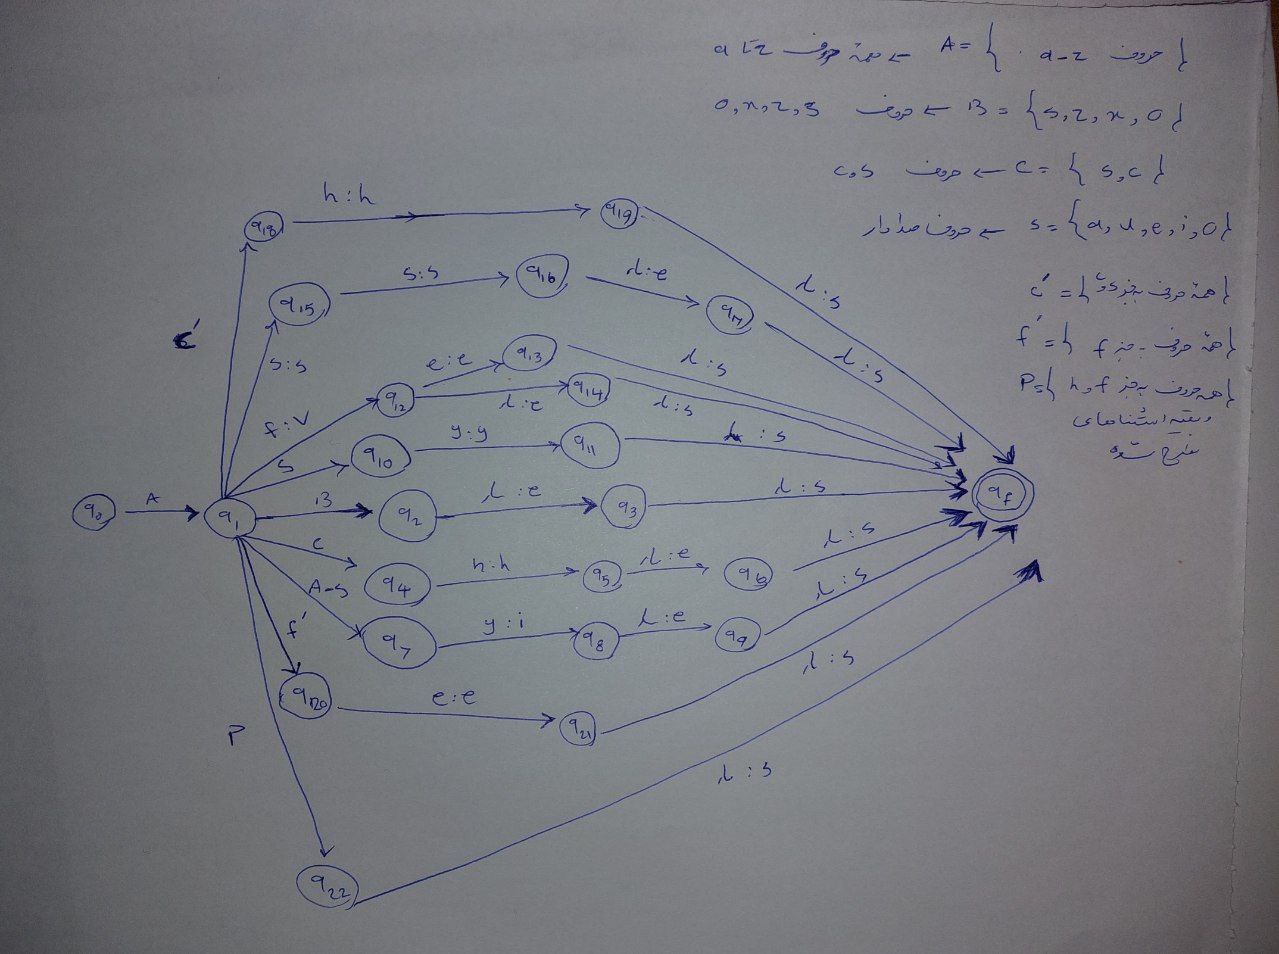 a تا z همهٔ حروف ← A = { حروف a-z }
o, x, z, s حروف ← B = {s, z, x, o}
c و s حروف ← C = {s, c}
حروف صدادار ← S = {a, u, e, i, o}
c' = {همهٔ حروف به جز s و c}
f' = {همهٔ حروف به جز f}
P = {همه حروف به جز h, f
و بقیه استثناهای
مطرح شده
h:h
q18
q19
λ:s
c'
s:s
q15
s:s
q16
λ:e
q17
λ:s
f:v
q12
e:e
q13
λ:s
λ:e
q14
λ:s
S
q10
y:y
q11
λ:s
q0
A
q1
B
q2
λ:e
q3
λ:s
qf
C
q4
h:h
q5
λ:e
q6
λ:s
A-S
q7
y:i
q8
λ:e
q9
λ:s
f'
q20
e:e
q21
λ:s
P
q22
λ:s